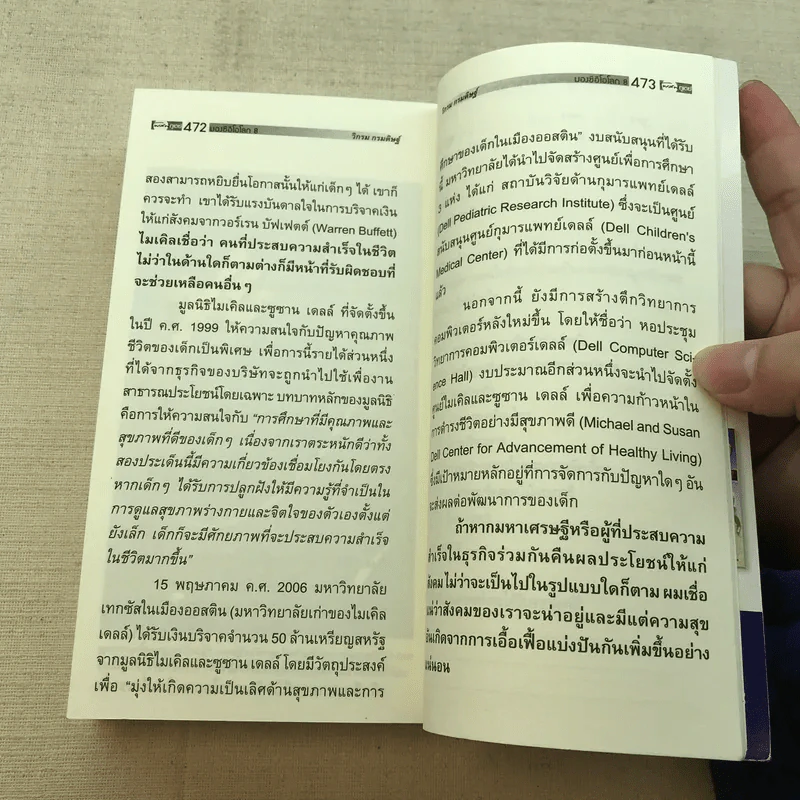 472 มองซีอีโอโลก 8
วิกรม กรมดิษฐ์
สองสามารถหยิบยื่นโอกาสนั้นให้แก่เด็กๆ ได้ เขาก็
ควรจะทำ เขาได้รับแรงบันดาลใจในการบริจาคเงิน
ให้แก่สังคมจากวอร์เรน บัฟเฟตต์ (Warren Buffett)
ไมเคิลเชื่อว่า คนที่ประสบความสำเร็จในชีวิต
ไม่ว่าในด้านใดก็ตามต่างก็มีหน้าที่รับผิดชอบที่
จะช่วยเหลือคนอื่นๆ
มูลนิธิไมเคิลและซูซาน เดลล์ ที่จัดตั้งขึ้น
ในปี ค.ศ. 1999 ให้ความสนใจกับปัญหาคุณภาพ
ชีวิตของเด็กเป็นพิเศษ เพื่อการนี้รายได้ส่วนหนึ่ง
ที่ได้จากธุรกิจของบริษัทจะถูกนำไปใช้เพื่องาน
สาธารณประโยชน์โดยเฉพาะ บทบาทหลักของมูลนิธิ
คือการให้ความสนใจกับ “การศึกษาที่มีคุณภาพและ
สุขภาพที่ดีของเด็กๆ เนื่องจากเราตระหนักดีว่าทั้ง
สองประเด็นนี้มีความเกี่ยวข้องเชื่อมโยงกันโดยตรง
หากเด็กๆ ได้รับการปลูกฝังให้มีความรู้ที่จำเป็นใน
การดูแลสุขภาพร่างกายและจิตใจของตัวเองตั้งแต่
ยังเล็ก เด็กก็จะมีศักยภาพที่จะประสบความสำเร็จ
ในชีวิตมากขึ้น”
15 พฤษภาคม ค.ศ. 2006 มหาวิทยาลัย
เทกซัสในเมืองออสติน (มหาวิทยาลัยเก่าของไมเคิล
เดลล์) ได้รับเงินบริจาคจำนวน 50 ล้านเหรียญสหรัฐ
จากมูลนิธิไมเคิลและซูซาน เดลล์ โดยมีวัตถุประสงค์
เพื่อ “มุ่งให้เกิดความเป็นเลิศด้านสุขภาพและการ
วิกรม กรมดิษฐ์
มองซีอีโอโลก 8 473
ศึกษาของเด็กในเมืองออสติน” งบสนับสนุนที่ได้รับ
นี้ มหาวิทยาลัยได้นำไปจัดสร้างศูนย์เพื่อการศึกษา
3 แห่ง ได้แก่ สถาบันวิจัยด้านกุมารแพทย์เดลล์
(Dell Pediatric Research Institute) ซึ่งจะเป็นศูนย์
สนับสนุนศูนย์กุมารแพทย์เดลล์ (Dell Children's
Medical Center) ที่ได้มีการก่อตั้งขึ้นมาก่อนหน้านี้
แล้ว
นอกจากนี้ ยังมีการสร้างตึกวิทยาการ
คอมพิวเตอร์หลังใหม่ขึ้น โดยให้ชื่อว่า หอประชุม
วิทยาการคอมพิวเตอร์เดลล์ (Dell Computer Sci-
ence Hall) งบประมาณอีกส่วนหนึ่งจะนำไปจัดตั้ง
ศูนย์ไมเคิลและซูซาน เดลล์ เพื่อความก้าวหน้าใน
การดำรงชีวิตอย่างมีสุขภาพดี (Michael and Susan
Dell Center for Advancement of Healthy Living)
ซึ่งมีเป้าหมายหลักอยู่ที่การจัดการกับปัญหาใดๆ อัน
จะส่งผลต่อพัฒนาการของเด็ก
ถ้าหากมหาเศรษฐีหรือผู้ที่ประสบความ
สำเร็จในธุรกิจร่วมกันคืนผลประโยชน์ให้แก่
สังคม ไม่ว่าจะเป็นไปในรูปแบบใดก็ตาม ผมเชื่อ
แน่ว่าสังคมของเราจะน่าอยู่และมีแต่ความสุข
อันเกิดจากการเอื้อเฟื้อแบ่งปันกันเพิ่มขึ้นอย่าง
แน่นอน